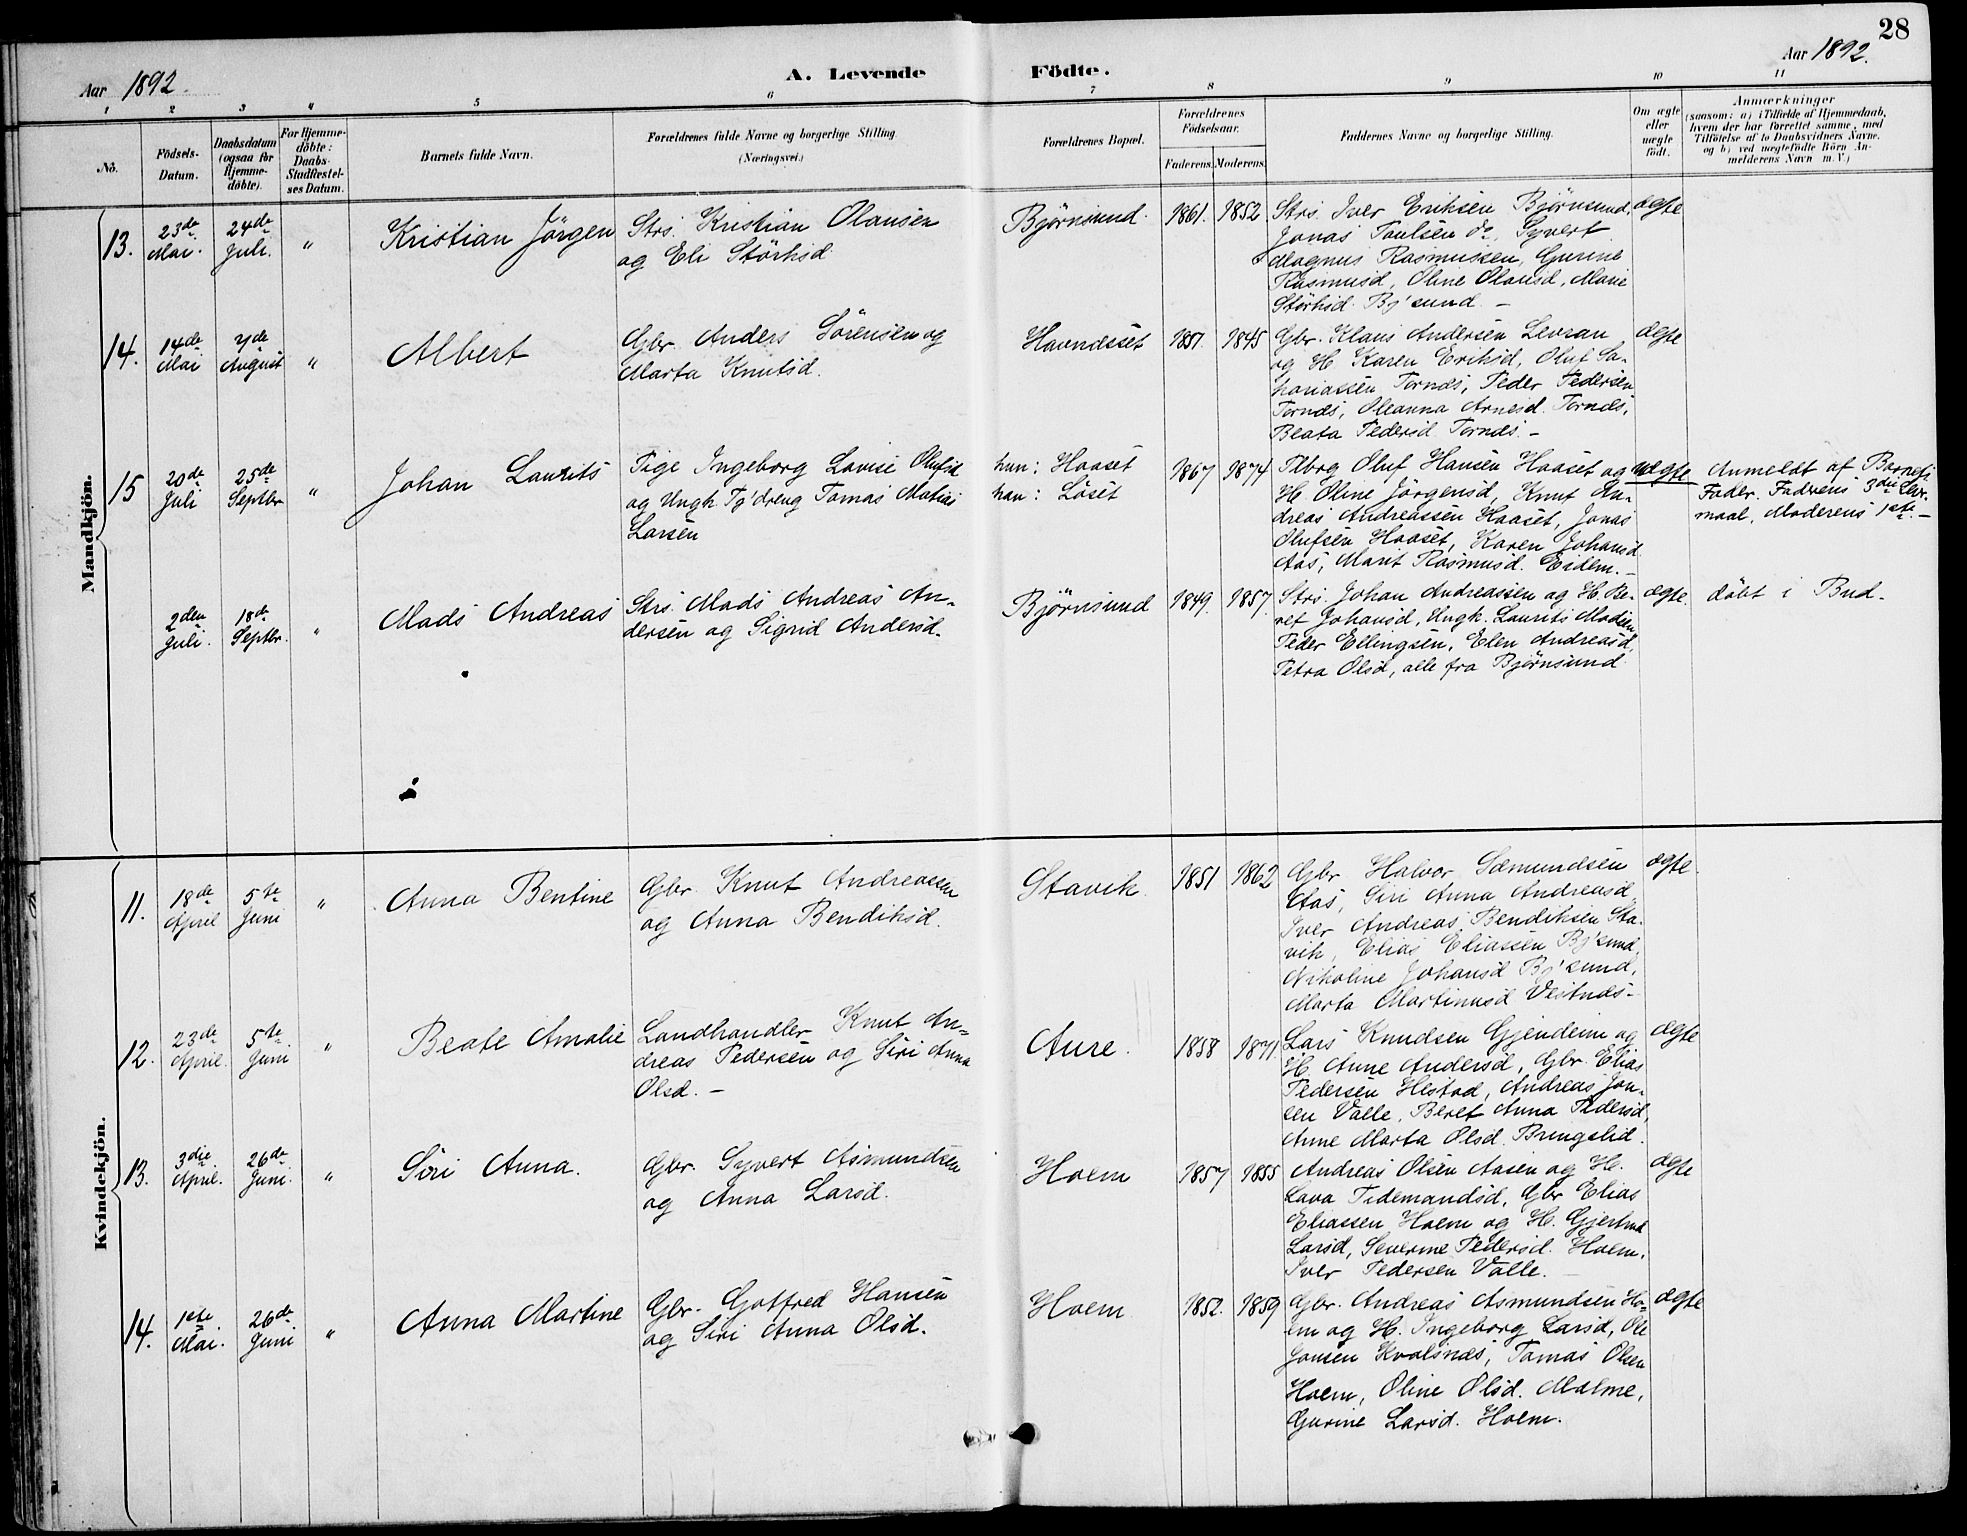 28
Aar 1892.
A. Levende
Födte.
Aar 1892.
1 2 3 " 5 6 7 8 9 10 11
No.
Födsels-
Datum.
Daabsdatum
(ogsaa för
Hjemme-
döbte).
For Hjemme-
döbte:
Daabs-
Stadfæstel-
ses Datum.
Barnets fulde Navn.
Forældrenes fulde Navne og borgerlige Stilling
(Næringsvei.)
Forældrenes Bopæl.
Forældrenes
Födselsaar.
Faderens. Moderens.
Faddernes Navne og borgerlige Stilling.
Om ægte
eller
uægte
födt.
Anmærkninger
(saasom: a) i Tilfælde af Hjemmedaab,
hvem der har forrettet samme, med
Tilföielse af to Daabsvidners Navne.
og b) ved uægtefödte Börn An-
melderens Navn m. V.)
Mandkjön.
13.
23de
Mai.
24de
Juli.
"
Kristian Jörgen
Strs. Kristian Olausen
og Eli Störksd.
Björnsund.
1861. 1852
Strs. Iver Eriksen Björnsund,
Jonas Paulsen do, Syvert
Magnus Rasmussen, Gurine
Rasmusd, Oline Olausd, Marie
Störksd. Bj'sund. -
ægte
14.
14de
Mai
7de
August
"
Albert
Gbr. Anders Sörensen og
Marta Knutsd.
Havnæsset
1851. 1845
Gbr. Klaus Andersen Levran
og H. Karen Eriksd, Oluf Sa-
kariassen Tornæs, Peder Pedersen
Tornæs, Oleanna Arnesd. Tornæs,
Beata Pedersd Tornæs. -
ægte
15
20de
Juli
25de
Septbr
"
Johan Laurits
Pige Ingeborg Lovise Olufsd
og Ungk. Tj'dreng Tomas Matias
Larsen
hun: Haaset
han: Löset
1867 1874
Plbrg Oluf Hansen Haaset og
H. Oline Jörgensd, Knut An-
dreas Andreassen Haaset, Jonas
Olufsen Haaset, Karen Johansd
Aas, Marit Rasmusd. Eidem. -
uægte
Anmeldt af Barnets
Fader. Faderens 3die Leier-
maal, Moderens 1ste. -
2den
Juli.
18de
Septbr.
"
Mads Andreas
Strs. Mads Andreas An-
dersen og Sigrid Andersd.
Björnsund
1849. 1857.
Strs. Johan Andreassen og H. Be-
ret Johansd, Ungk. Laurits Madsen,
Peder Ellingsen, Elen Andreasd,
Petra Olsd, alle fra Björnsund.
ægte.
döbt i Bud.
Kvindekjön.
11.
18de
April
5te
Juni
"
Anna Bentine
Gbr. Knut Andreassen
og Anna Bendiksd.
Stavik.
1851 1862
Gbr. Halvor Sæmundsen
Aas, Siri Anna Andreasd,
Iver Andreas Bendiksen Sta-
vik, Elias Eliassen Bj'sund,
Nikoline Johansd Bj'sund,
Marta Martinusd Vestnæs. -
ægte.
12.
23de
April.
5te
Juni
"
Beate Amalie
Landhandler Knut An-
dreas Pedersen og Siri Anna
Olsd. -
Aure.
1858 1871.
Lars Knudsen Gjendeim og
H. Anne Andersd, Gbr. Elias
Pedersen Hestad, Andreas Jon-
sen Valle, Beret Anna Pedersd,
Anne Marta Olsd. Bringslid.
ægte
13.
3die
April.
26de
Juni.
"
Siri Anna.
Gbr. Syvert Asmundsen
og Anna Larsd.
Hoem
1857 1855
Andreas Olsen Aasen og H.
Lava Tidemandsd, Gbr Elias
Eliassen Hoem og H. Gjertrud
Larsd, Severine Pedersd. Hoem,
Iver Pedersen Valle. -
ægte
14.
1ste
Mai.
26de
Juni
"
Anna Martine
Gbr. Gotfred Hansen
og Siri Anna Olsd.
Hoem
1852. 1859
Gbr. Andreas Asmundsen Ho-
em og H. Ingeborg Larsd, Ole
Jonsen Kvalsnæs, Tomas Olsen
Hoem, Oline Olsd. Malme,
Gurine Larsd. Hoem.
ægte